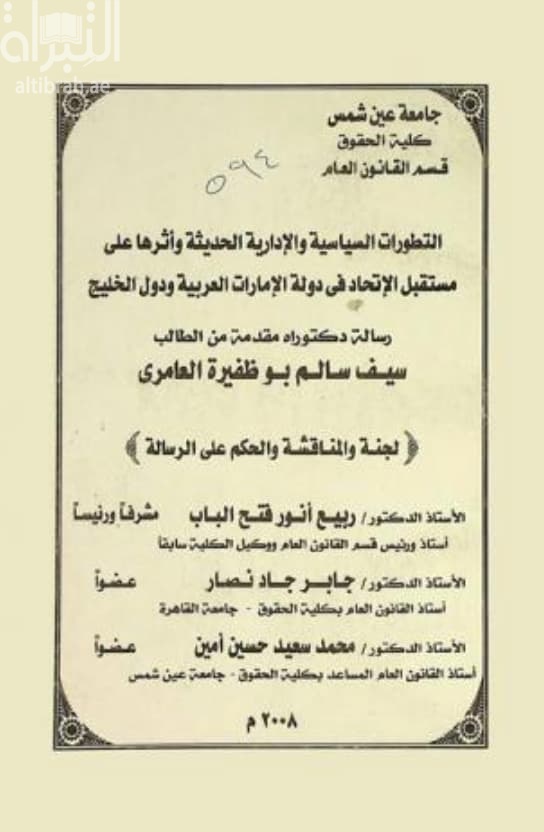 التبراة
altibrah.ae
جامعة عين شمس
كلية الحقوق
قسم القانون العام
٥٩٤
التطورات السياسية والإدارية الحديثة وأثرها على
مستقبل الإتحاد فى دولة الإمارات العربية ودول الخليج
رسالة دكتوراه مقدمة من الطالب
سيف سالم بو ظفيرة العامرى
﴿ لجنة والمناقشة والحكم على الرسالة ﴾
الأستاذ الدكتور/ ربيع أنور فتح الباب مشرفاً ورئيساً
أستاذ ورئيس قسم القانون العام ووكيل الكلية سابقاً
الأستاذ الدكتور/ جابر جاد نصار عضواً
أستاذ القانون العام بكلية الحقوق - جامعة القاهرة
الأستاذ الدكتور/ محمد سعيد حسين أمين عضواً
أستاذ القانون العام المساعد بكلية الحقوق - جامعة عين شمس
٢٠٠٨ م